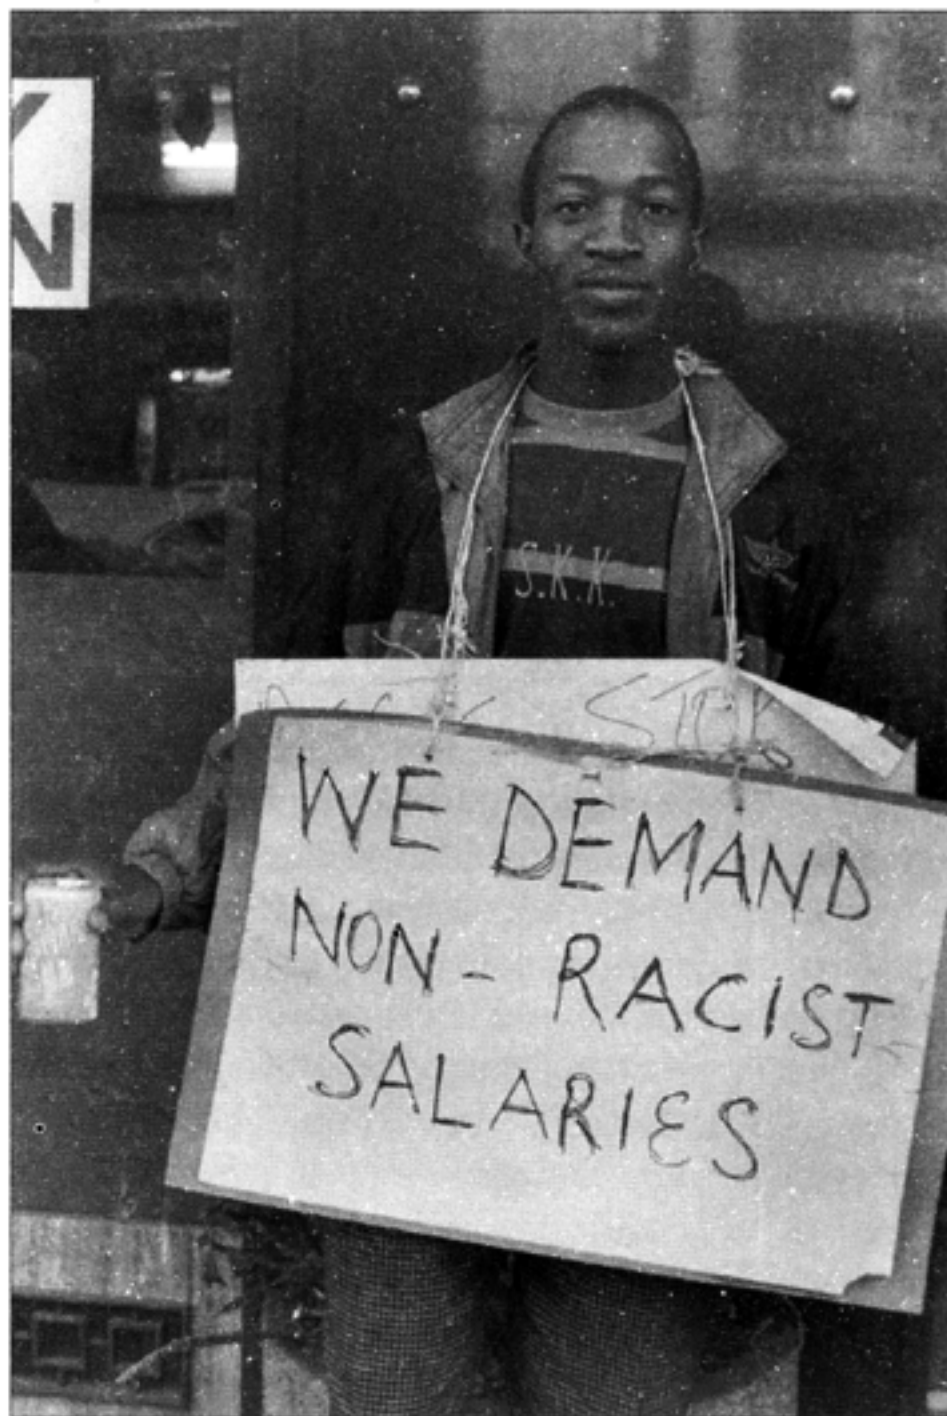 N
S.K.K.
STOCK
WE DEMAND
NON- RACIST
SALARIES